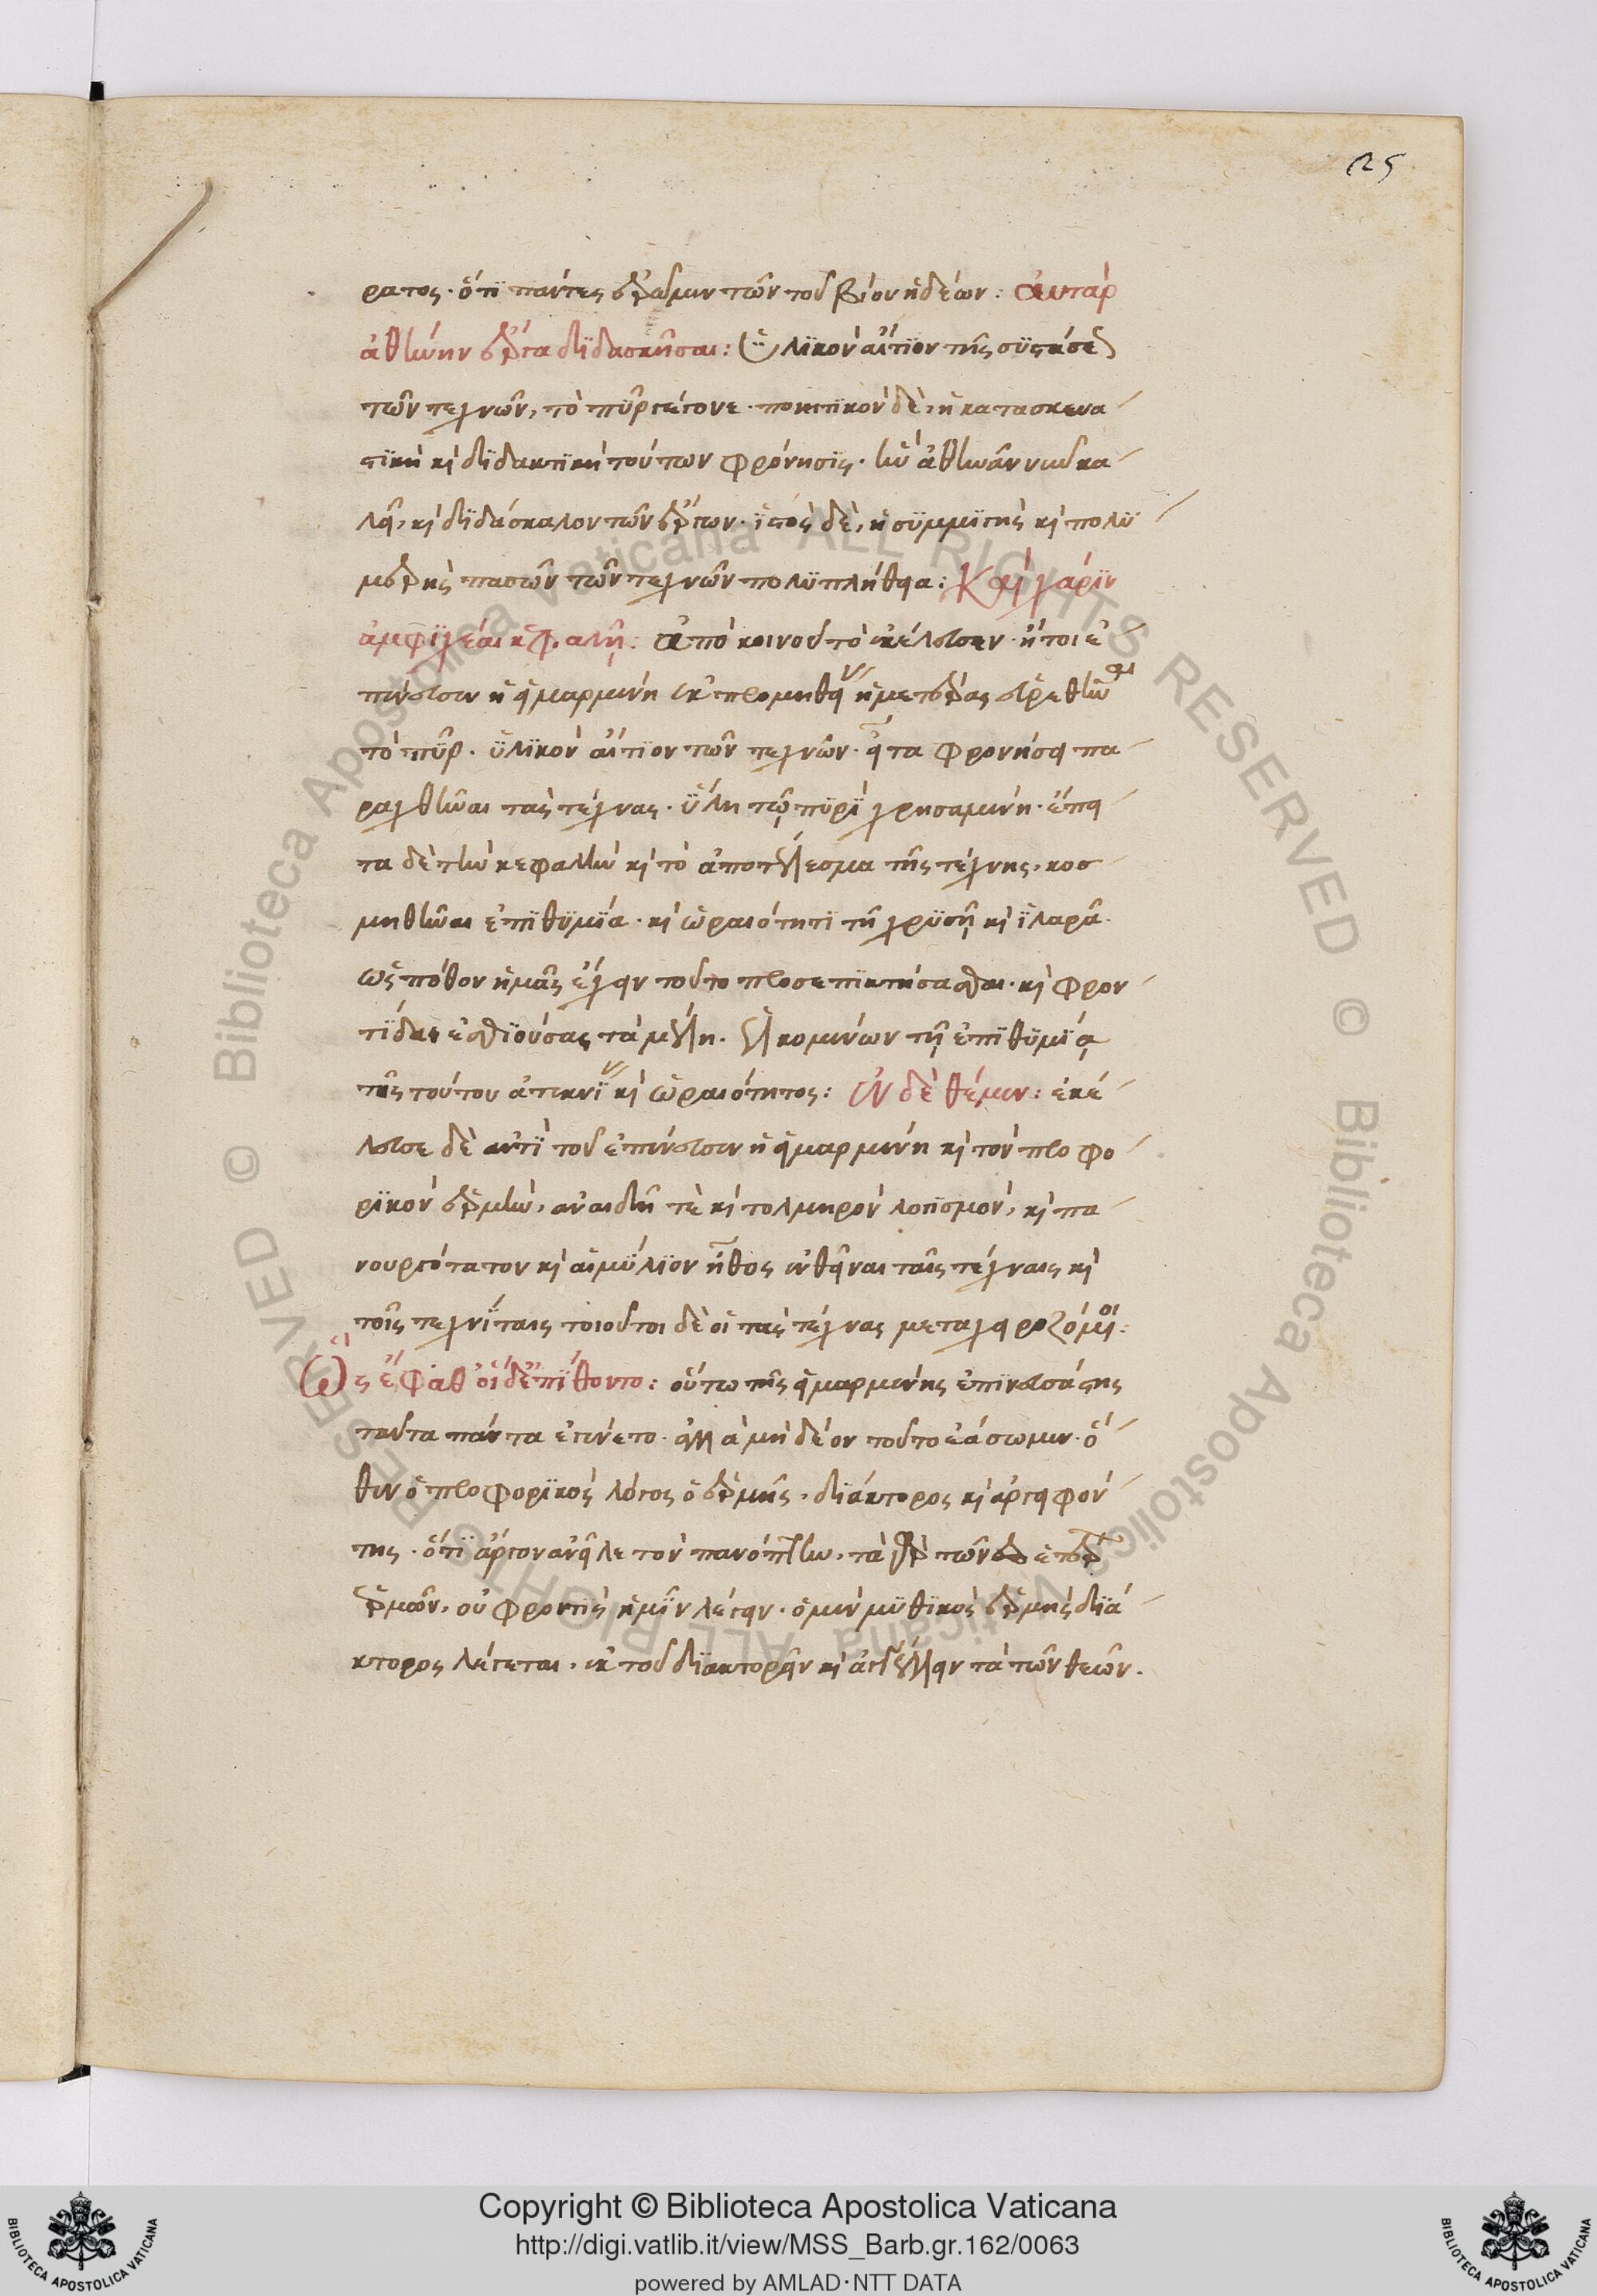 125
ρατος· ὅτϊ πάντες ἐρῶμεν τῶν τοῦ βίου ἡδέων: αὐτὰρ
ἀθήνην ἔργα διδασκῆσαι: ὑλϊκὸν αἴτϊον τῆς συστάσεως
τῶν τεχνῶν, τὸ πῦρ γέγονε· ποιητϊκὸν δὲ, ἡ κατασκευα
στϊκὴ κὶ διδακτϊκὴ τούτων φρόνησις· ἣν ἀθηνᾶν νῦν κα
λεῖ, κὶ διδάσκαλον τῶν ἔργων· ϊστὸς δὲ, ἡ σϋμμϊγὴς κὶ πολϋ
μερὴς πασῶν τῶν τεχνῶν πολϋπλήθεια: Καὶ χάρϊν
ἀμφϊχέαι κεφαλῆ: ἀπὸ κοινοῦ τὸ ἐκέλευσεν· ἤτοι ἐ
πένευσεν ἡ εἱμαρμένη ἐκ προμηθείας ἡμετέρας εὑρεθῆναι
τὸ πῦρ· ὑλϊκὸν αἴτϊον τῶν τεχνῶν· εἶτα φρονήσει πα
ραχθῆναι τὰς τέχνας· ὕλη τῷ πϋρὶ χρησαμένη· ἔπει
τα δὲ τὴν κεφαλὴν κὶ τὸ ἀποτέλεσμα τῆς τέχνης, κοσ
μηθῆναι ἐπϊθϋμία· κὶ ὡραιότητϊ τῇ χρϋσῇ κὶ ἱλαρᾶ·
ὡς πόθον ἡμᾶς ἔχειν τοῦτο προσεπϊκτήσασθαι· κὶ φρον
τίδας ἐσθϊούσας τὰ μέλη· ἑλκομένων τῇ ἐπϊθϋμίᾳ
τῆς τούτου κὶ ὡραιότητος: ἐν δὲ θέμεν: ἐκέ
λευσε δὲ ἀντὶ τοῦ ἐπένευσεν ἡ εἱμαρμένη κὶ τὸν προφο
ρϊκὸν ἑρμῆν, ἀναιδῆ τὲ κὶ τολμηρὸν λογϊσμὸν, κὶ πα
νουργότατον κὶ αἱμύλϊον ἦθος ἐνθεῖναι ταῖς τέχναις κὶ
τοῖς τεχνίταις τοιοῦτοι δὲ οἱ τὰς τέχνας μεταχειριζόμενοι:
Ὣς ἔφαθ' οἱ δ' ἐπίθοντο: οὕτω τῆς εἱμαρμένης ἐπϊνευσάσης
ταῦτα πάντα ἐγένετο· ἀλλὰ μὴ δέον τοῦτο ἐάσωμεν· ὅ
θεν ὁ προφορϊκὸς λόγος ὁ ἑρμῆς, διάκτορος κὶ ἀργειφόν
της· ὅτϊ ἄργον ἀνεῖλε τὸν πανόπτην, τὰ περὶ τῶν ἑτέρων
ἑρμῶν, οὐ φροντὶς ἡμῖν λέγειν· ὁ μὲν μϋθϊκὸς ἑρμῆς διά
κτορος λέγεται, ἐκ τοῦ διακτορεῖν κὶ ἀγγέλλειν τὰ τῶν θεῶν.
Copyright © Biblioteca Apostolica Vaticana
http://digi.vatlib.it/view/MSS_Barb.gr.162/0063
powered by AMLAD·NTT DATA